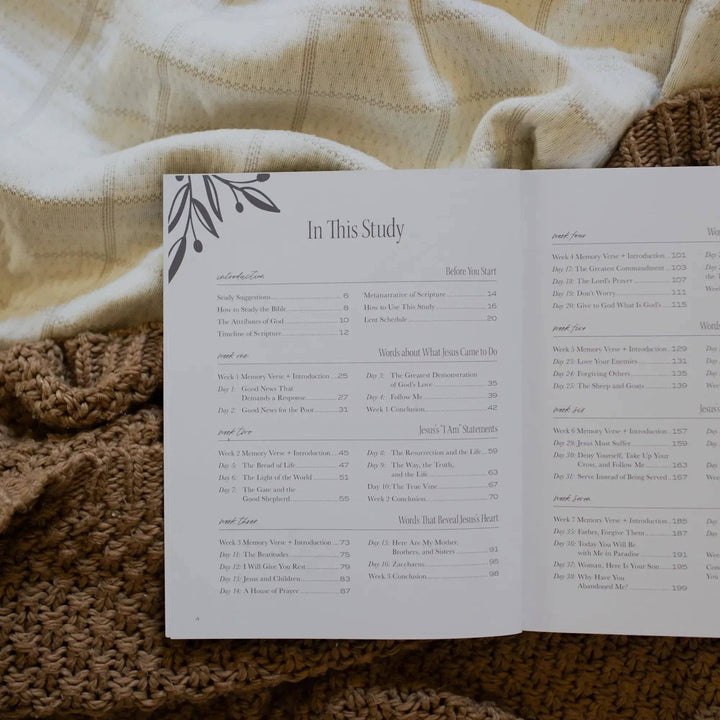 In This Study
introduction
Before You Start
Study Suggestions 6
How to Study the Bible 8
The Attributes of God 10
Timeline of Scripture 12
Metanarrative of Scripture 14
How to Use This Study 16
Lent Schedule 20
week one
Words about What Jesus Came to Do
Week 1 Memory Verse + Introduction 25
Day 1: Good News That
Demands a Response 27
Day 2: Good News for the Poor 31
Day 3: The Greatest Demonstration
of God's Love 35
Day 4: Follow Me 39
Week 1 Conclusion 42
week two
Jesus's "I Am" Statements
Week 2 Memory Verse + Introduction 45
Day 5: The Bread of Life 47
Day 6: The Light of the World 51
Day 7: The Gate and the
Good Shepherd 55
Day 8: The Resurrection and the Life 59
Day 9: The Way, the Truth,
and the Life 63
Day 10: The True Vine 67
Week 2 Conclusion 70
week three
Words That Reveal Jesus's Heart
Week 3 Memory Verse + Introduction 73
Day 11: The Beatitudes 75
Day 12: I Will Give You Rest 79
Day 13: Jesus and Children 83
Day 14: A House of Prayer 87
Day 15: Here Are My Mother,
Brothers, and Sisters 91
Day 16: Zacchaeus 95
Week 3 Conclusion 98
4
week four
Wo
Week 4 Memory Verse + Introduction 101
Day 17: The Greatest Commandment 103
Day 18: The Lord's Prayer 107
Day 19: Don't Worry 111
Day 20: Give to God What Is God's 115
Day
the T
Week
week five
Words
Week 5 Memory Verse + Introduction 129
Day 23: Love Your Enemies 131
Day 24: Forgiving Others 135
Day 25: The Sheep and Goats 139
Day
Day
Week
week six
Jesus
Week 6 Memory Verse + Introduction 157
Day 29: Jesus Must Suffer 159
Day 30: Deny Yourself, Take Up Your
Cross, and Follow Me 163
Day 31: Serve Instead of Being Served 167
Day
Day
week seven
Week 7 Memory Verse + Introduction 185
Day 35: Father, Forgive Them 187
Day 36: Today You Will Be
with Me in Paradise 191
Day 37: Woman, Here Is Your Son 195
Day 38: Why Have You
Abandoned Me? 199
Day
Week
Conc
You